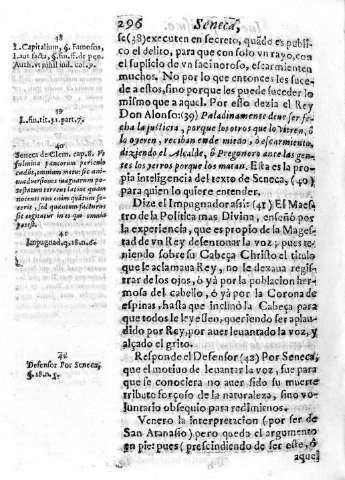 296 Seneca,
se (38) executen en secreto, quãdo es publi-
co el delito, para que con solo vn rayo, con
el suplicio de vn facinoroso, escarmienten
muchos. No por lo que entonces les suce-
de a estos, sino porque les puede suceder lo
mismo que a aquel. Por esto dezia el Rey
Don Alonso: (39) Paladinamente deue ser fe-
cha la justicia, porque los otros que lo vieren, ô
lo oyeren, reciban ende miedo, ô escarmiento,
diziendo el Alcalde, ô Pregonero ante las gen-
tes los yerros porque los matan. Esta es la pro-
pia inteligencia del texto de Seneca, (40)
para quien lo quiere entender.
Dize el Impugnador assi: (41) El Maes-
tro de la Politica mas Divina, enseñò por
la experiencia, que es propio de la Mages-
tad de vn Rey desentonar la voz; pues te-
niendo sobre su Cabeça Christo el titulo
que le aclamaua Rey, no le dexaua regis-
trar de los ojos, ò yà por la poblacion her-
mosa del cabello, ò yà por la Corona de
espinas, hasta que inclinò la Cabeça para
que todos le leyessen, queriendo ser aplau-
dido por Rey, por auer leuantado la voz, y
alçado el grito.
Responde el Defensor (42) Por Seneca,
que el motiuo de leuantar la voz, fue para
que se conociera no auer sido su muerte
tributo forçoso de la naturaleza, sino vo-
luntario obsequio para redimirnos.
Venero la interpretacion (por ser de
San Atanasio) pero queda el argumento
en pie: pues (prescindiendo de ser este, ô
aquel
38
L. Capitalium, §. Famosos,
L. aut facta, §. fin. ff. de pœn.
Auth. vt nihil ind. col. 9.
39
L. fin. tit. 31. part. 7.
40
Seneca de Clem. cap. 8. Vt
fulmina paucorum periculo
cadunt, omnium metu: sic ani-
maduersiones magnarum po-
testatum terrent latius quàm
nocent: non enim quantum fe-
cerit, sed quantum facturus
sit cogitatur in eo qui omnia
potest.
41
Impugnad. q. 18. n. 6.
42
Defensor Por Seneca,
§. 18. n. 5.